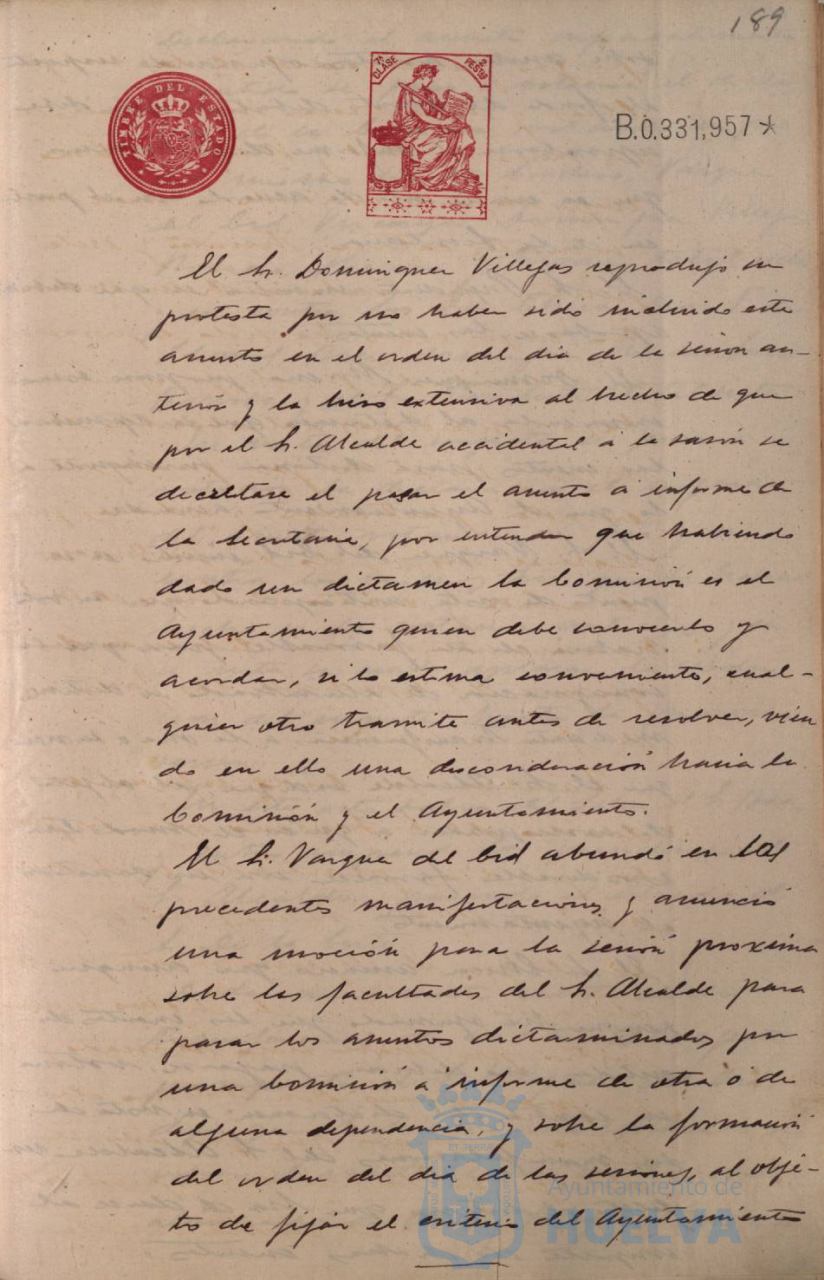 189
TIMBRE DEL ESTADO
7ª CLASE
2 PESTAS
B.0.331,957*
El Sr. Dominguez Villegas reprodujo su
protesta por no haber sido incluido este
asunto en el orden del dia de la sesion an-
terior y la hizo extensiva al hecho de que
por el Sr. Alcalde accidental á la sazón se
decretase el pasar el asunto á informe de
la Secretaria, por entender que habiendo
dado un dictamen la Comisión es el
Ayuntamiento quien debe conocerlo y
acordar, si lo estima conveniente, cual-
quier otro tramite antes de resolver, vien
do en ello una desconsideración hacia la
Comisión y el Ayuntamiento.
El Sr. Vargas del Cid abundó en las
precedentes manifestaciones y anunció
una moción para la sesión proxima
sobre las facultades del Sr. Alcalde para
pasar los asuntos dictaminados por
una Comisión á informe de otra ó de
alguna dependencia, y sobre la formación
del orden del dia de las sesiones, al obje-
to de fijar el criterio del Ayuntamiento
Ayuntamiento de
HUELVA